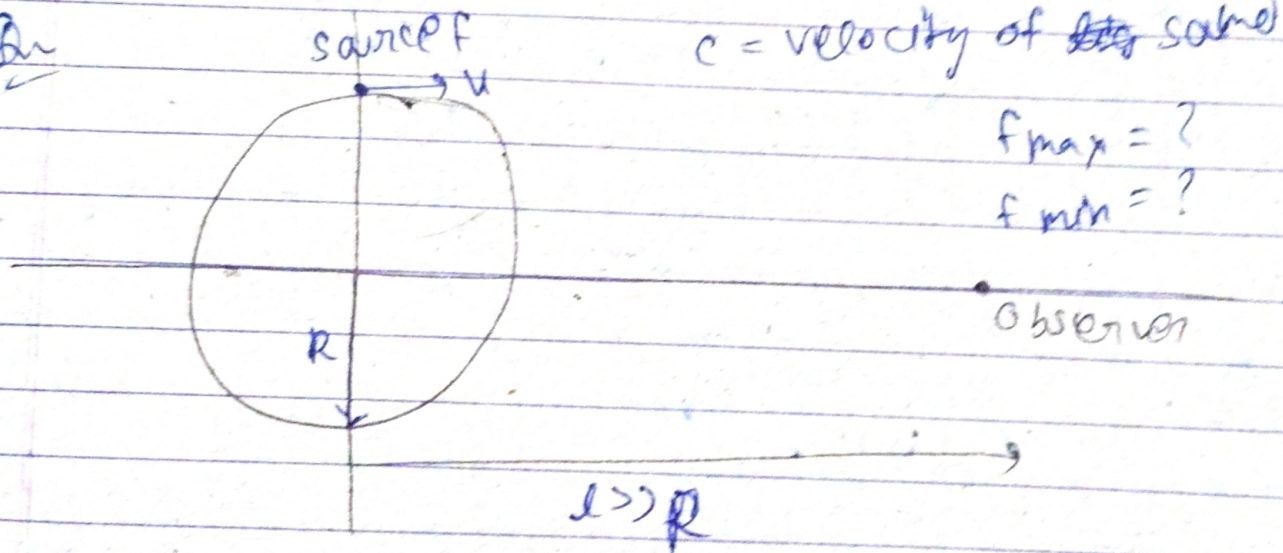 Qn
source f
c = velocity of sound
u
f max = ?
f min = ?
Observer
R
l >> R